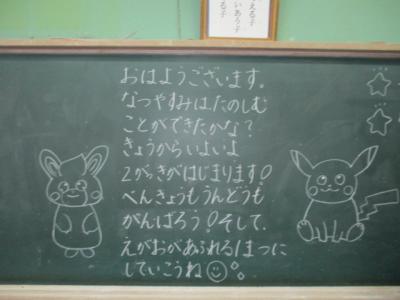 える子
いあう子
る子
おはようございます。
なつやすみは、たのしむ
ことができたかな？
きょうからいよいよ
2がっきがはじまります！
べんきょうもうんどうも
がんばろう！そして、
えがおがあふれる1まつに
していこうね